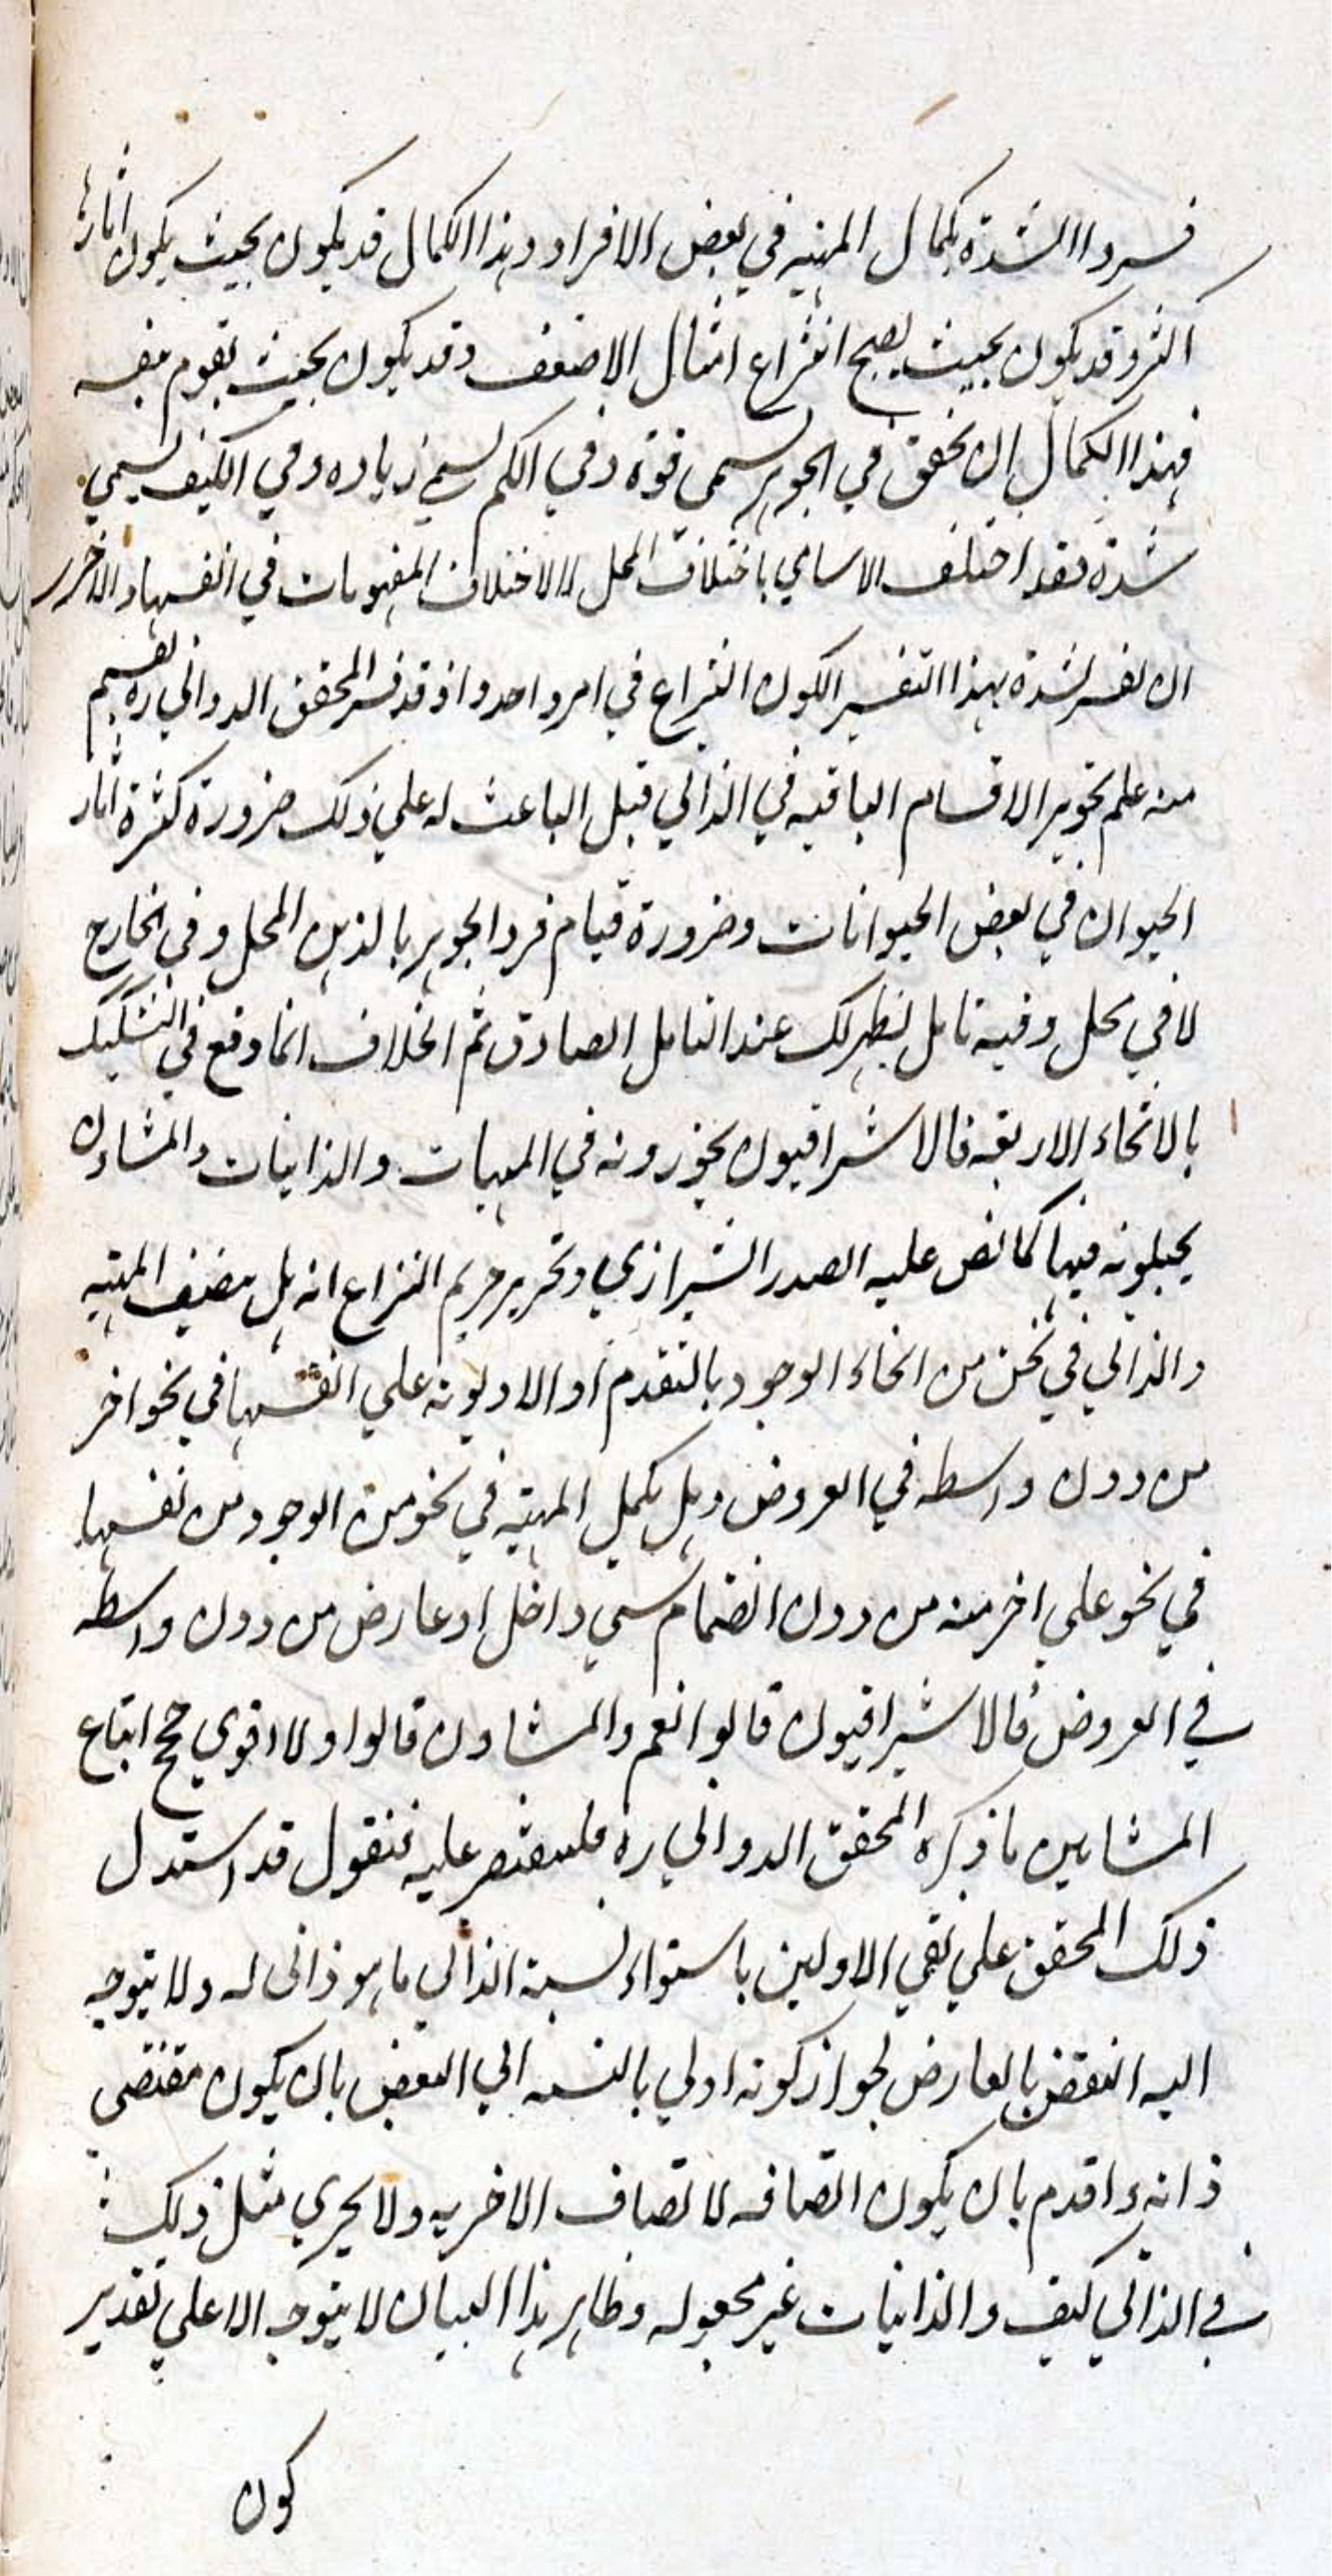 فسروا الشدة بكمال المهية في بعض الافراد وهذا الكمال قد يكون بحيث يكون اثاره
اكثر وقد يكون بحيث يصح انتزاع امثال الاضعف وقد يكون بحيث تقوم بنفسه
فهذا الكمال ان تحقق في الجوهر يسمى قوة وفي الكم يسمي زياده وفي الكيف يسمي
شدة فقد اختلف الاسامي باختلاف المحل لا لاختلاف المفهومات في انفسها والاحرر
ان تفسر الشدة بهذا التفسير ليكون النزاع في امر واحد واذ قد فسر المحقق الدواني ره بقسم
منه علم تجويز الاقسام الباقيه في الذاتي قبل الباعث له علي ذلك ضرورة كثرة اثار
الحيوان في بعض الحيوانات وضرورة قيام فرد الجوهر بالذهن المحل وفي الخارج
لا في محل وفيه تامل يظهر لك عند التامل الصادق ثم الخلاف انما وقع في التشكيك
بالانحاء الاربعه فالاشراقيون يجوزونه في المهيات والذاتيات والمشاون
يحيلونه فيها كما نص عليه الصدر الشيرازي وتحرير حريم النزاع انه هل يتصف المهية
والذاتي في نحو من انحاء الوجود بالتقدم او الاولوية علي انفسها في نحو اخر
من دون واسطه في العروض وهل يكمل المهية في نحو من الوجود من نفسها
في نحو علي اخر منه من دون انضمام شي داخل او عارض من دون واسطه
في العروض فالاشراقيون قالوا نعم والمشاون قالوا ولا اقوي حجج اتباع
المشايين ما ذكره المحقق الدواني ره فلنقتصر عليه فنقول قد استدل
ذلك المحقق علي نفي الاولين باستواء نسبة الذاتي ما هو ذاتى له ولا يتوجه
اليه النقض بالعارض لجواز كونه اولي بالنسبه الي البعض بان يكون مقتضى
ذاته واقدم بان يكون اتصافه لاتصاف الاخر به ولا يجري مثل ذلك
في الذاتي كيف والذاتيات غير مجعوله وظاهر هذا البيان لا يتوجه الا علي تقدير
كون